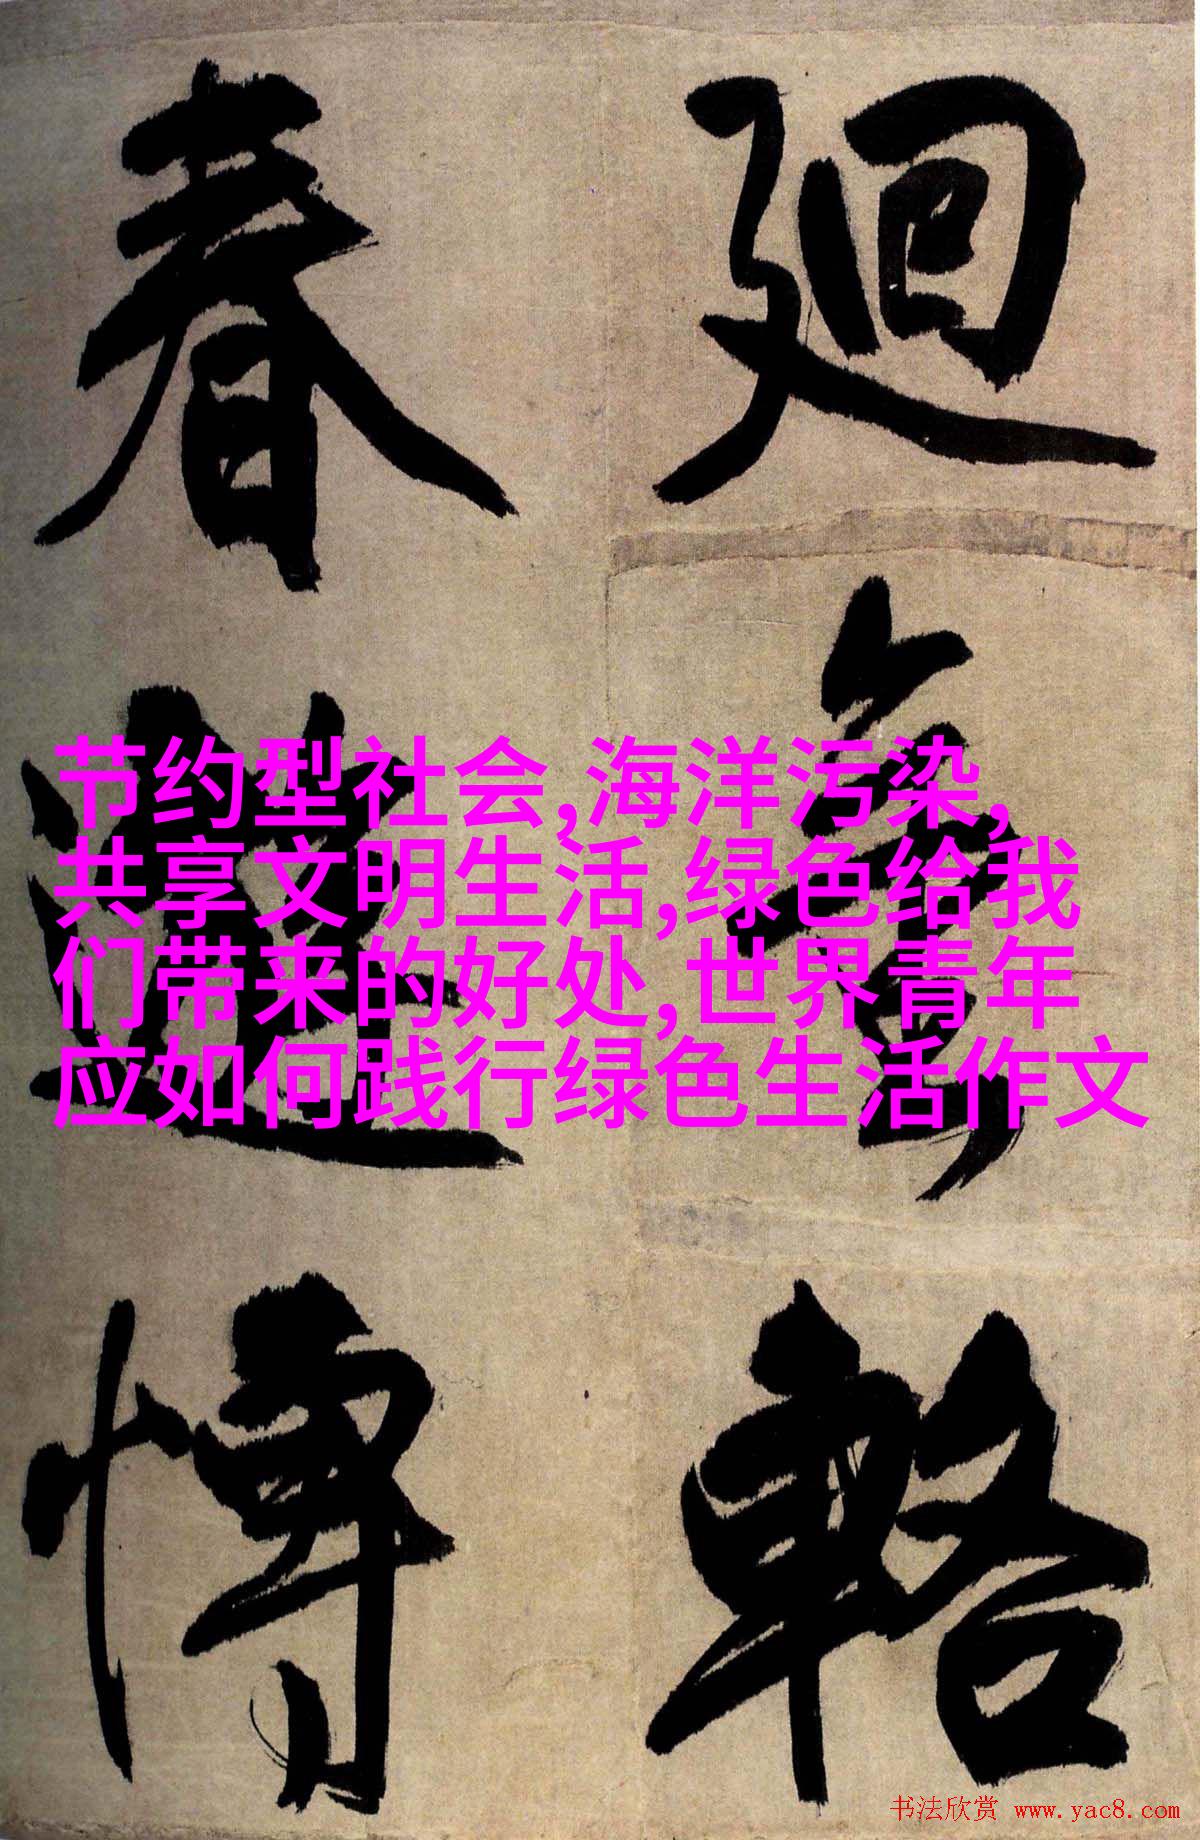 廻
輅
春
節约型社会,海洋污染,
共享文明生活,绿色给我
们带来的好处,世界青年
应如何践行绿色生活作文
书法欣赏 www.yac8.com